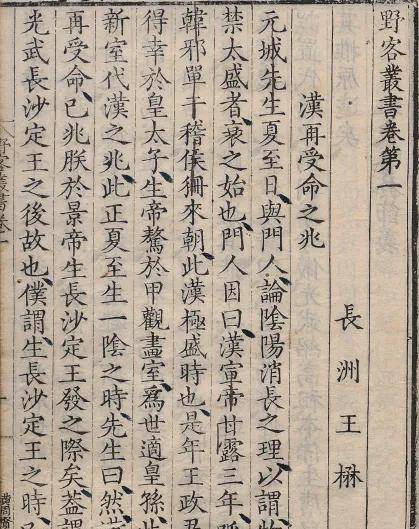 野客叢書卷第一
長洲王楙
漢再受命之兆
元城先生夏至日與門人論陰陽消長之理以謂物
禁太盛者衰之始也門人因曰漢宣帝甘露三年呼
韓邪單于稽侯狦來朝此漢極盛時也是年王政君
得幸於皇太子生帝驁於甲觀畫室為世適皇孫此
新室代漢之兆此正夏至生一陰之時先生曰然漢
再受命已兆朕於景帝生長沙定王發之際矣蓋謂
光武長沙定王之後故也僕謂生長沙定王之時
野客叢書卷一